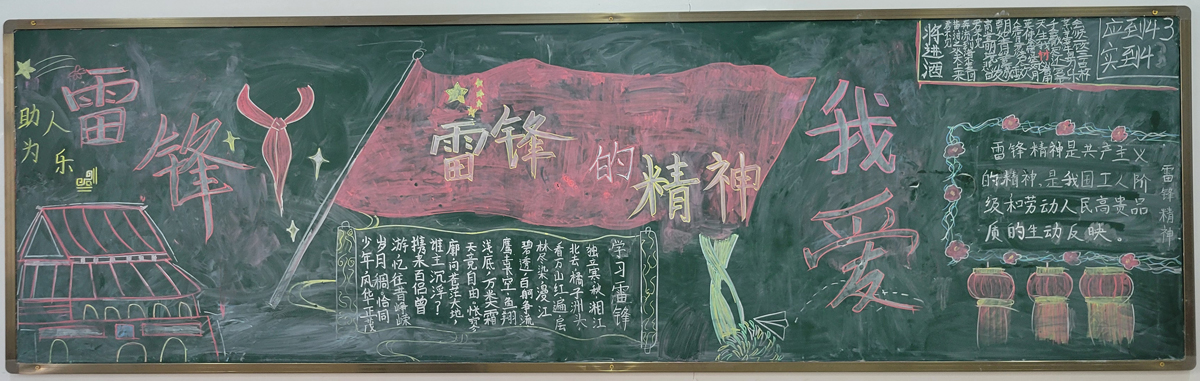 雷锋
助人
为乐
雷锋
的
精神
我爱
学习雷锋
独立寒秋湘江
北去橘子洲头
看万山红遍层
林尽染漫江
碧透百舸争流
鹰击长空鱼翔
浅底万类霜
天竞自由怅寥
廓问苍茫大地,
谁主沉浮?
携来百侣曾
游忆往昔峥嵘
岁月稠恰同
少年风华正茂
将进酒
应到43
实到4
雷锋精神是共产主义
的精神,是我国工人阶
级和劳动人民高贵品
质的生动反映。
雷锋精神